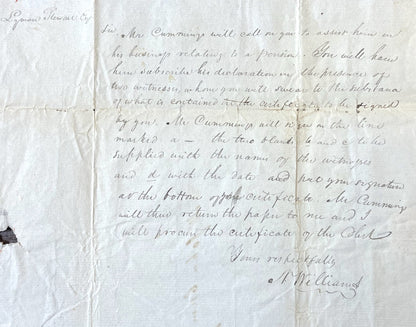 Lyman Stewart Esq
Sir. Mr Cummings will call on you to assist him in
his business relating to a pension. You will have
him subscribe his declaration in the presence of
two witnesses, whom you will swear to the substance
of what is contained in the certificate to be signed
by you. Mr Cummings will sign on the line
marked a — the two blanks b and c to be
supplied with the name of the witnesses
and d with the date and put your signature
at the bottom of the certificate. Mr Cummings
will then return the paper to me and I
will procure the certificate of the Court
Yours respectfully
N Williams